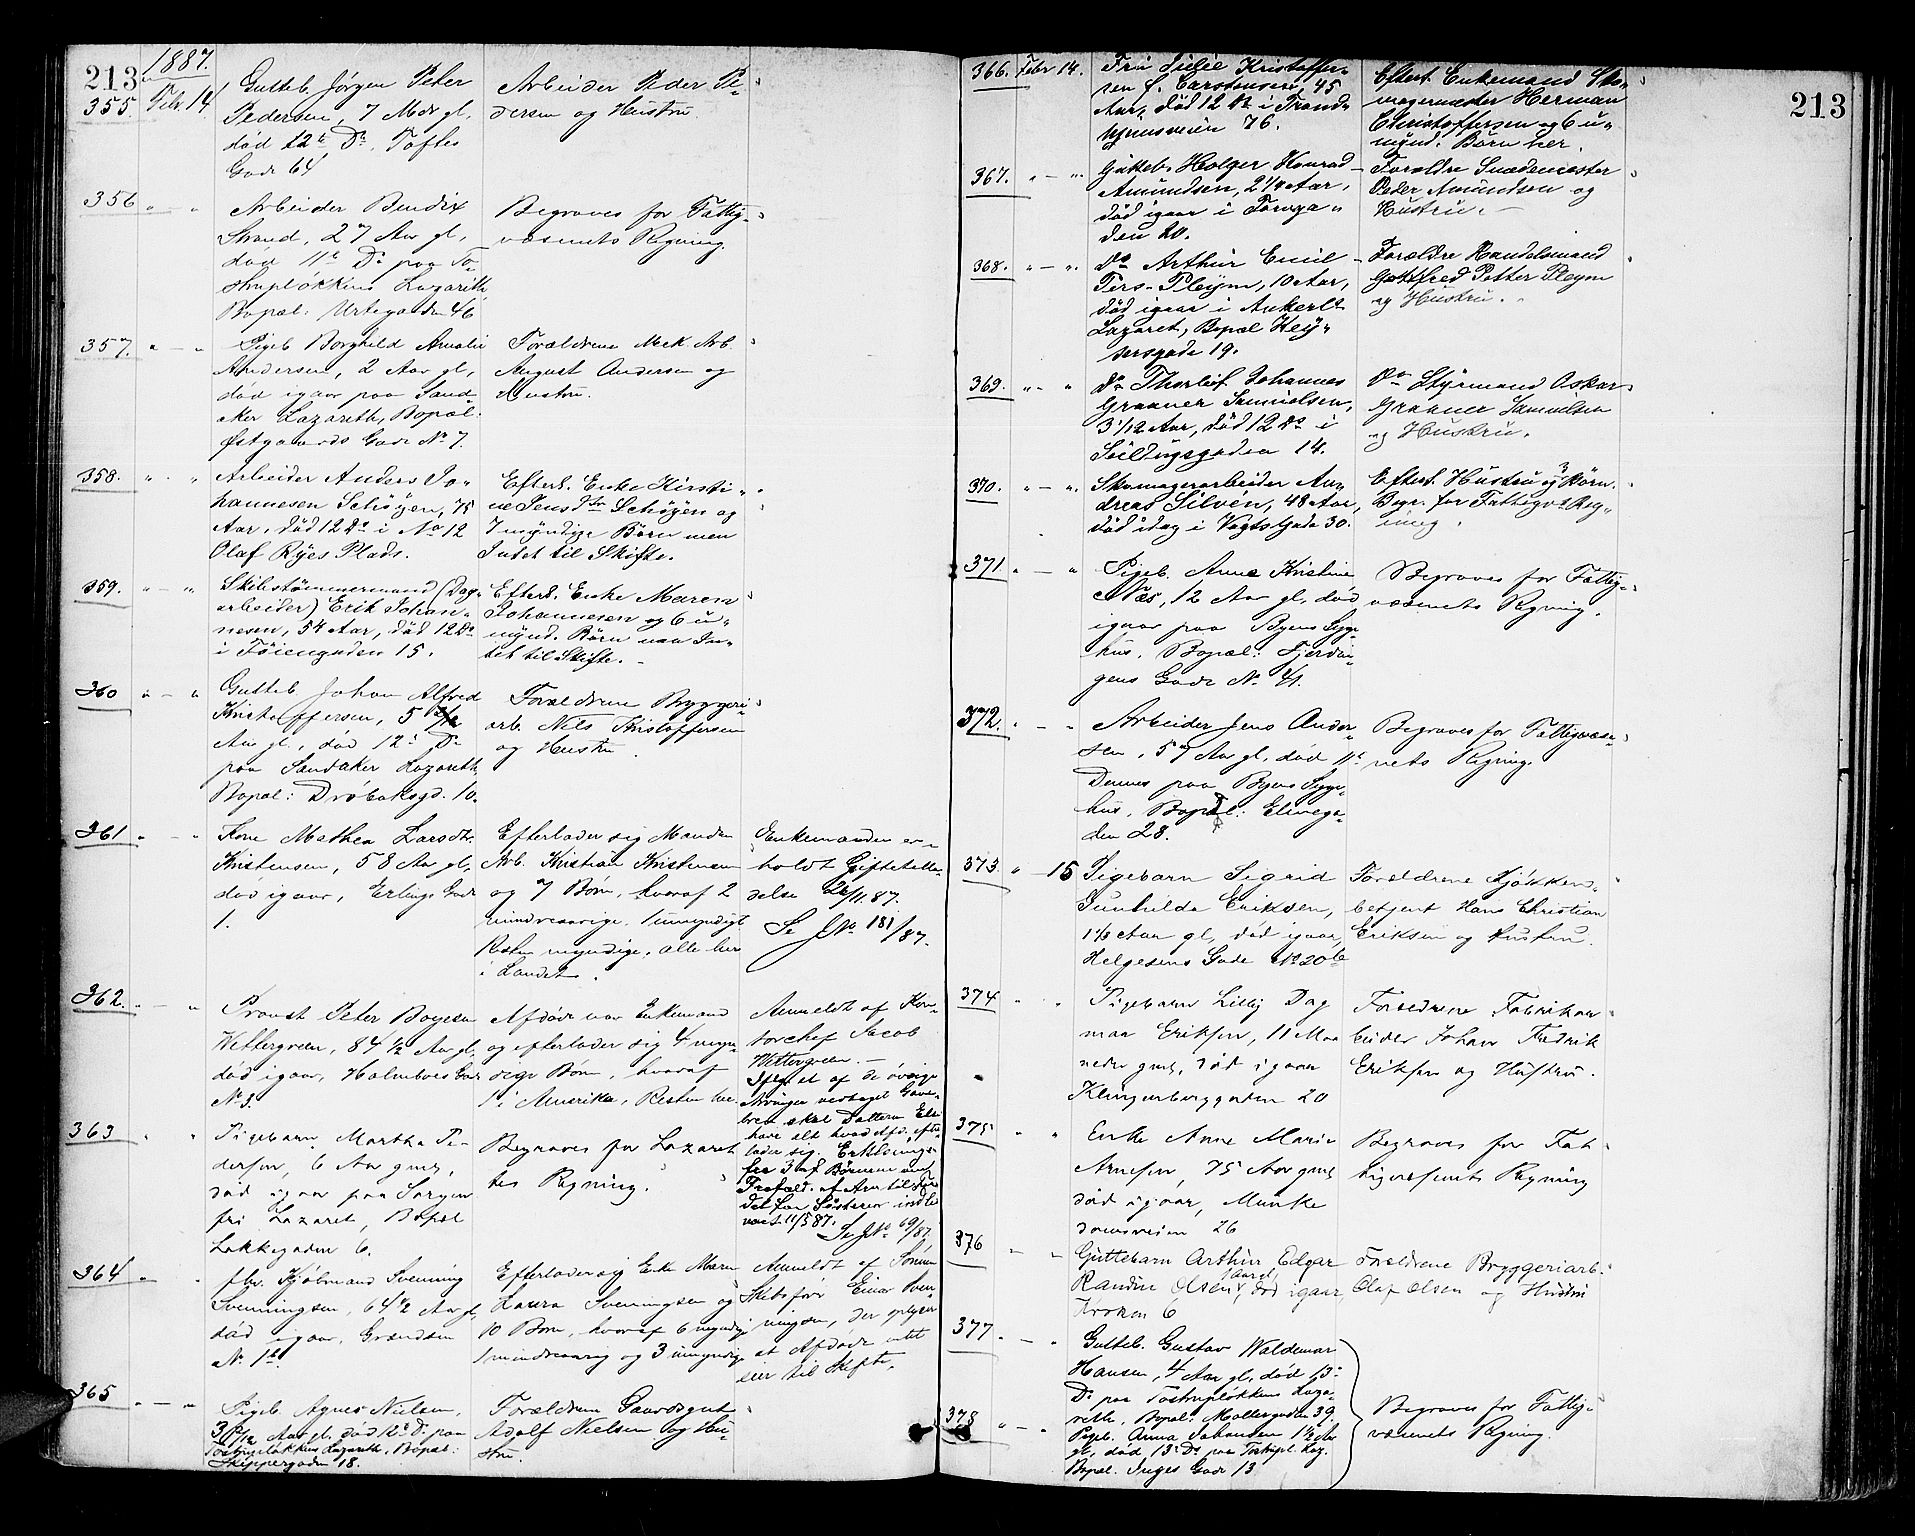 213
1887.
355. Febr. 14
Gutteb. Jörgen Peter
Pedersen, 7 Mdr gl,
död 12te Ds. Toftes
Gade 64
Arbeider Peder Pe-
dersen og Hustru
356 " — "
Arbeider Bendix
Strand, 27 Aar gl,
död 11te Ds paa To-
strupløkkens Lazareth
Bopæl: Urtegaden 46
Begraves for Fattig-
væsenets Regning.
357. " — "
Pigeb Borghild Amalie
Andersen, 2 Aar gl,
död igaar paa Sand-
aker Lazareth, Bopæl:
Østgaards Gade No 7.
Forældrene Mek. Arb.
August Andersen og
Hustru.
358. " — "
Arbeider Anders Jo-
hannesen Schöyen, 75
Aar, död 12 Ds i No 12
Olaf Ryes Plads.
Efterl. Enke Kirsti-
ne Jens Dtr Schöyen og
7 myndige Börn men
Intet til Skifte.
359. " — "
Skibstömmermand (Dag-
arbeider) Erik Johan-
nesen, 54 Aar, död 12 Ds
i Föiengaden 15.
Efterl. Enke Maren
Johannesen og 6 u-
mynd. Börn men In-
tet til Skifte.
360 " — "
Gutteb Johan Alfred
Kristoffersen, 5
Aar gl, död 12te Ds
paa Sandaker Lazareth
Bopæl: Dröbaksgd. 10.
Forældrene Bryggeri-
arb. Nils Kristoffersen
og Hustru
361 " — "
Kone Mathea Larsdtr
Kristensen, 58 Aar gl,
död igaar, Erlings Gade
1.
Efterlader sig Manden
Arb. Kristian Kristensen
og 7 Börn, hvoraf 2
mindreaarige, 1 umyndigt
Resten myndige, alle her
i Landet.
Enkemanden er-
holdt Giftetilla-
delse 26/11 87.
Se JNo 181/87.
362. " — "
Provst Peter Boyesen
Wettergreen, 84 1/2 Aar gl,
död igaar, Holmboes Gade
No 3.
Afdöde var Enkemand
og efterlader sig 4 myn-
dige Börn, hvoraf
1 i Amerika, Resten her
Anmeldt af Kon-
torchef Jacob
Wettergreen. —
Ifølge et af de övrige
Arvinger vedtaget Gave-
brev skal Datteren Else
have alt hvad Afd. efter-
lader sig. Erklærings-
fra 3 af Börnene om
Frafald af Arv til For-
del for Söster indle-
veret 11/5 87.
Se JNo 69/87.
363 " "
Pigebarn Martha Pe-
dersen, 6 Aar gml,
död igaar paa Sorgen
fri Lazaret, Bopæl
Lakkegaden 6.
Begraves for Lazaret
tes Regning.
364 " "
fhv. Kjöbmand Svenning
Svenningsen, 64 1/2 Aar gl,
död igaar, Grændsen
No 1 b.
Efterlader sig Enke Maren
Laura Svenningsen og
10 Börn, hvoraf 6 myndige
1 mindreaarig og 3 umyndige
Anmeldt af Sönnen
Skibsförer Einar Sven-
ningsen, der oplyser
at Afdöde intet
eier til Skifte.
365 " — "
Pigeb Agnes Nielsen,
3 Aar gl. död 12te Ds paa
Tostrupløkkens Lazareth, Bopæl:
Skippergaden 18.
Forældrene Gaardsgut
Adolf Nielsen og Hu-
stru.
213
366. Febr 14.
Fru Julie Kristoffer-
sen f. Carstensen, 45
Aar, död 12 Ds i Trond-
hjemsveien 76.
Efterl. Enkemand Sko-
magermester Herman
Christoffersen og 6 u-
mynd. Börn her.
367. " — "
Gutteb. Holger Konrad
Amundsen, 2 1/4 Aar,
död igaar i Torvga-
den 20.
Forældre Snedkermester
Peder Amundsen og
Hustru. —
368. " — "
Do Arthur Emil
Pers-Pleym, 10 Aar,
död igaar i Ankerl
Lazaret, Bopæl Key-
sersgade 19.
Forældre Handelsmand
Gottfred Petter Pleym
og Hustru.
369. " — "
Do Thorleif Johannes
Graaner Samuelsen,
3 1/12 Aar, död 12 Ds i
Skillingsgaden 14.
Do Styrmand Oskar
Graaner Samuelsen
og Hustru.
370. " — "
Skomagerarbeider An-
dreas Silvén, 48 Aar,
död idag i Vogts Gade 30.
Efterl. Hustru og 3 Börn.
Begr. for Fattigvs Reg-
ning.
371 " — "
Pigeb. Anne Kristine
Næs, 12 Aar gl, död
igaar paa Byens Syge-
hus, Bopæl: Fjerdin-
gens Gade No 41.
Begraves for Fattig-
væsenets Regning.
372. " — "
Arbeider Jens Ander-
sen, 57 Aar gl, död 11te
Dennes paa Byens Syge-
hus, Bopæl: Elvega-
den 28.
Begraves for Fattigvæse-
nets Regning.
373. " 15
Pigebarn Sigrid
Gunhilda Eriksen,
1 1/3 Aar gl, död igaar,
Helgesens Gade No 20 b
Forældrene Kjökken-
betjent Hans Christian
Eriksen og Hustru.
374 " "
Pigebarn Lilly Dag
maa Eriksen, 11 Maa
neder gml, död igaar
Klingenberggaden 20
Foreldrene Fabrikar
beider Johan Fredrik
Eriksen og Hustru.
375 " "
Enke Anne Marie
Arnesen, 75 Aar gml
död igaar, Munke
damsveien 26
Begraves for Fat-
tigvæsenets Regning
376 " "
Guttebarn Arthur Edgar
Randin Olsen, Aar gl, död igaar,
Kroken 6
Forældrene Bryggeriarb.
Olaf Olsen og Hustru
377 " — "
Gutteb. Gustav Waldemar
Hansen, 4 Aar gl, död 13de
Ds paa Tostrupløkkens Laza-
reth. Bopæl: Mollergaden 39.
378 " — "
Pigeb. Anna Johansen 1 1/2 Aar
gl, död 13de Ds paa Tostrupl. Laz.
Bopæl. Inges Gade 13
Begraves for Fattig-
væsenets Regning.